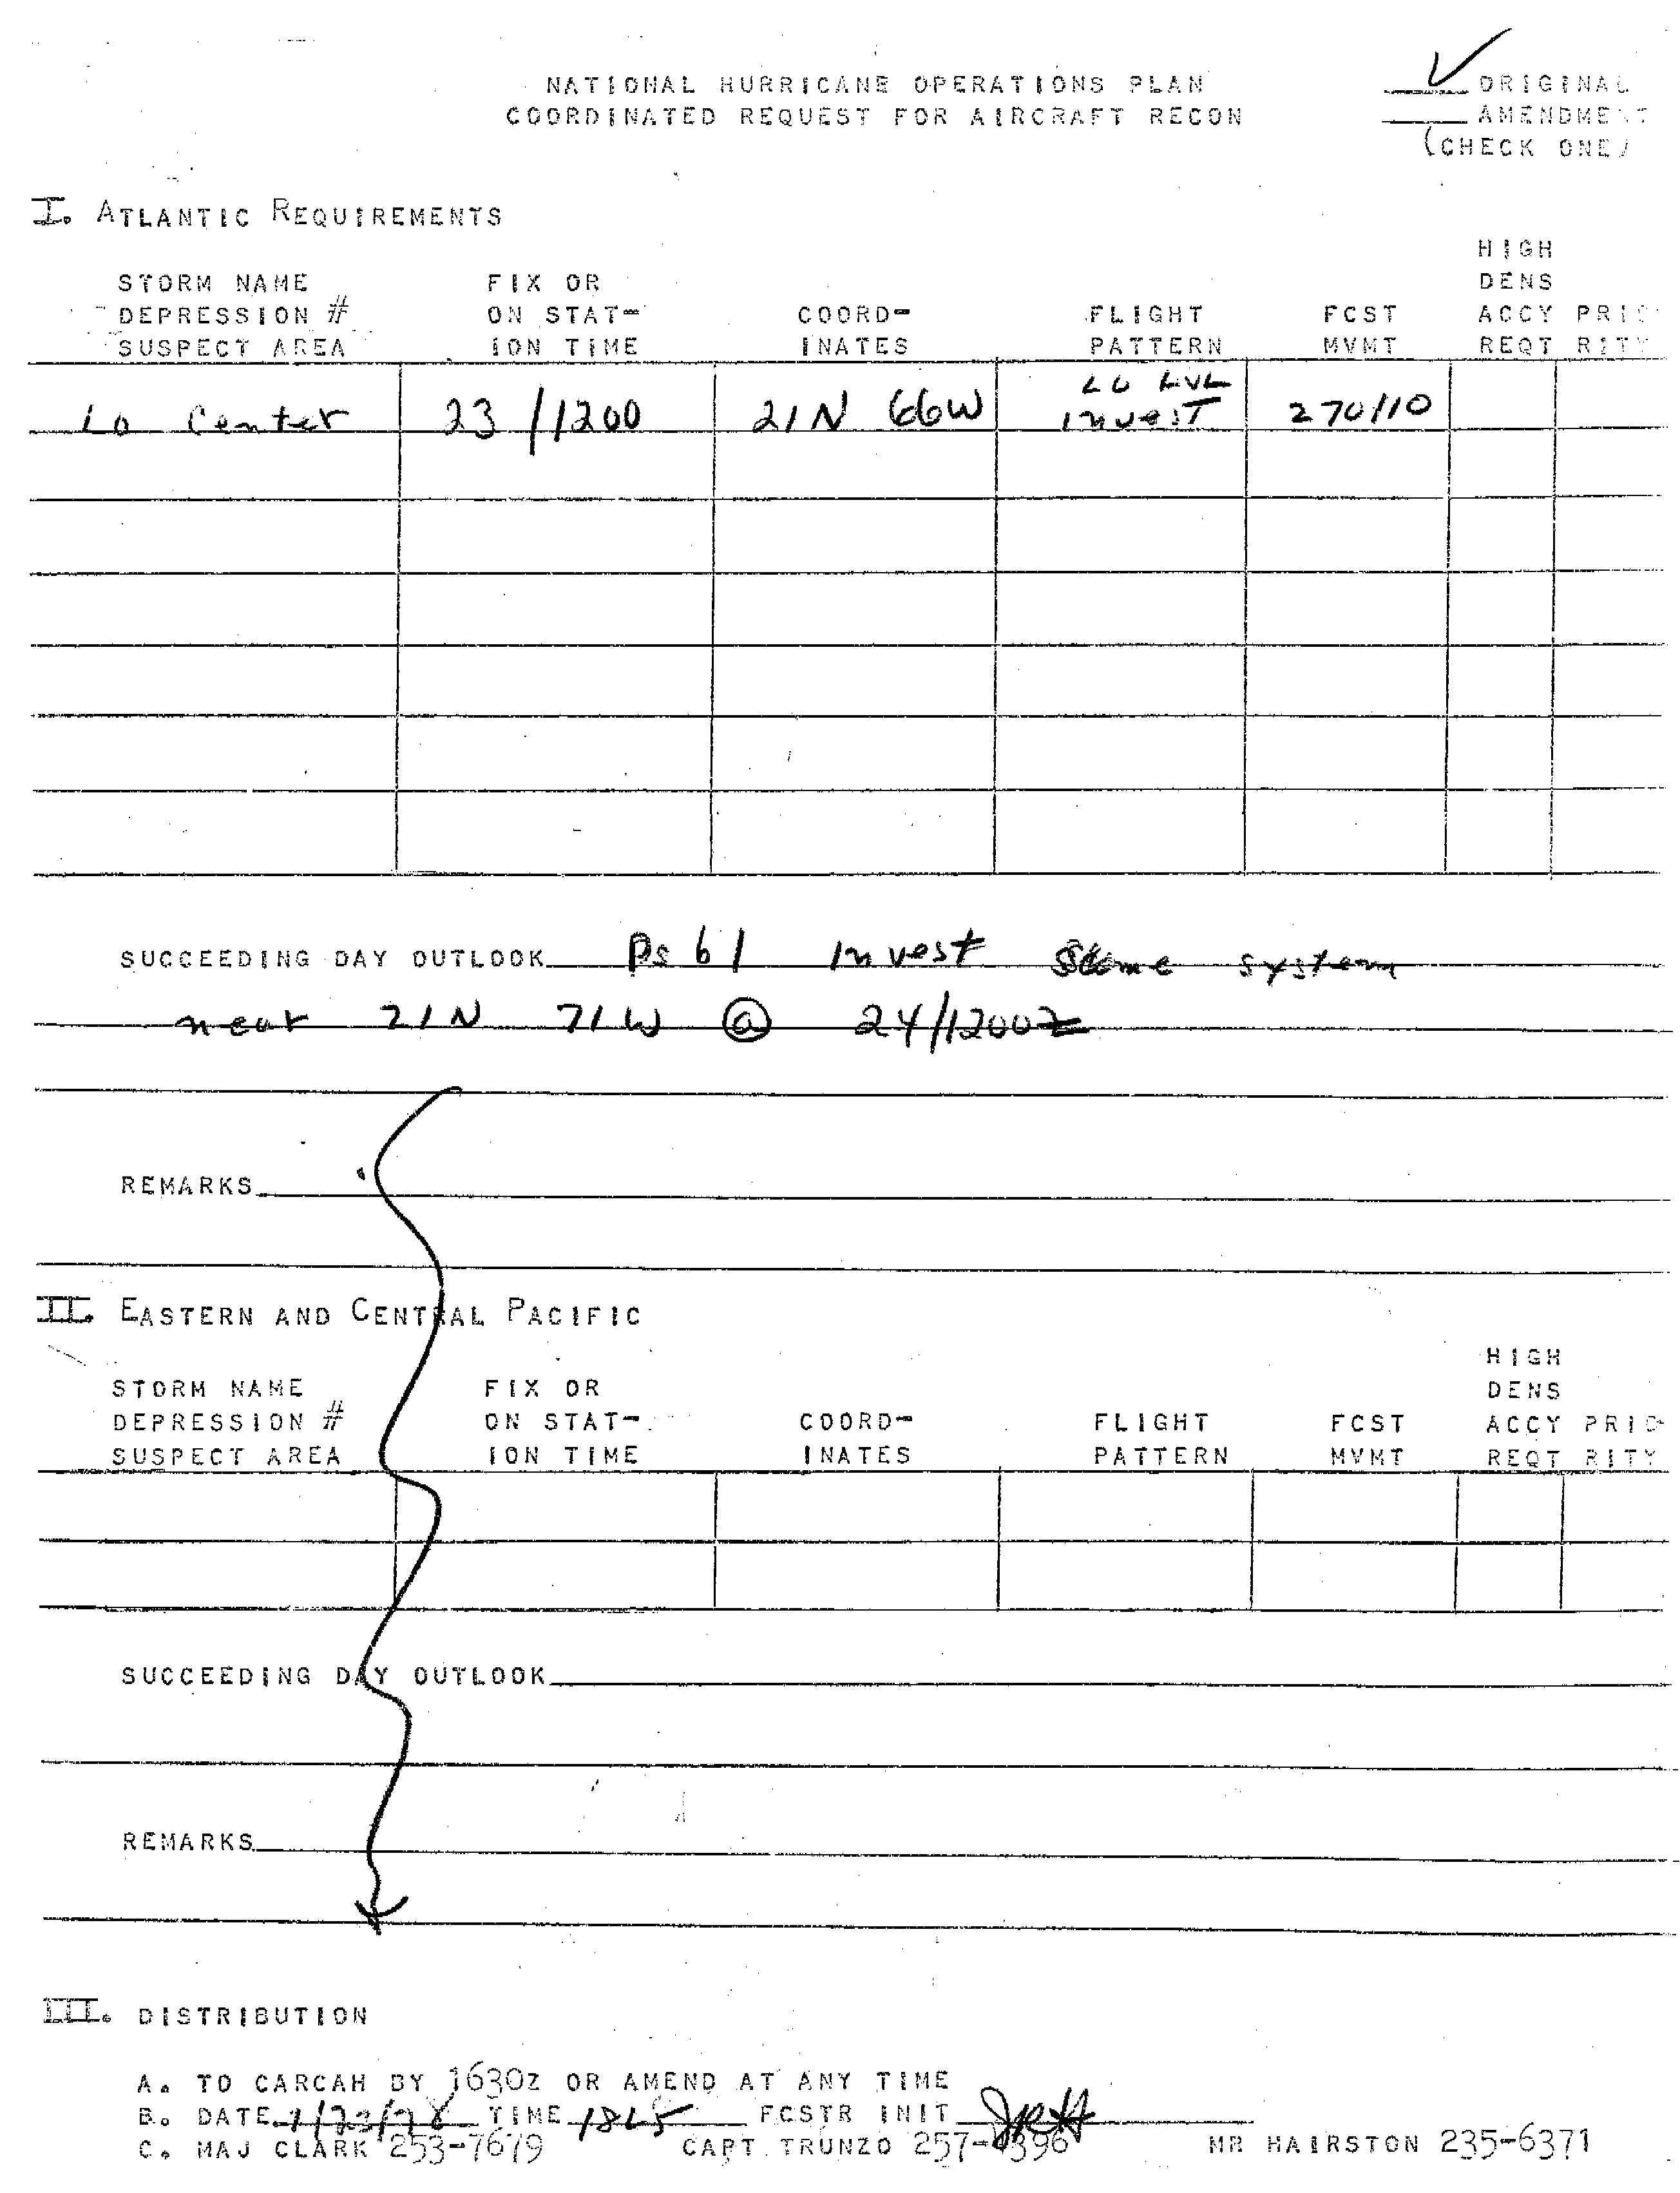 NATIONAL HURRICANE OPERATIONS PLAN
COORDINATED REQUEST FOR AIRCRAFT RECON
✓ ORIGINAL
AMENDMENT
(CHECK ONE)
I. ATLANTIC REQUIREMENTS
HIGH
STORM NAME FIX OR DENS
DEPRESSION # ON STAT- COORD- FLIGHT FCST ACCY PRIO
SUSPECT AREA ION TIME INATES PATTERN MVMT REQT RITY
LO LVL
Lo Center 23/1200 21N 66W invest 270/10
SUCCEEDING DAY OUTLOOK Psbl invest same system
near 21N 71W @ 24/1200Z
REMARKS
II. EASTERN AND CENTRAL PACIFIC
HIGH
STORM NAME FIX OR DENS
DEPRESSION # ON STAT- COORD- FLIGHT FCST ACCY PRIO
SUSPECT AREA ION TIME INATES PATTERN MVMT REQT RITY
SUCCEEDING DAY OUTLOOK
REMARKS
III. DISTRIBUTION
A. TO CARCAH BY 1630Z OR AMEND AT ANY TIME
B. DATE TIME FCSTR INIT
C. MAJ CLARK 253-7679 CAPT TRUNZO MR HAIRSTON 235-6371